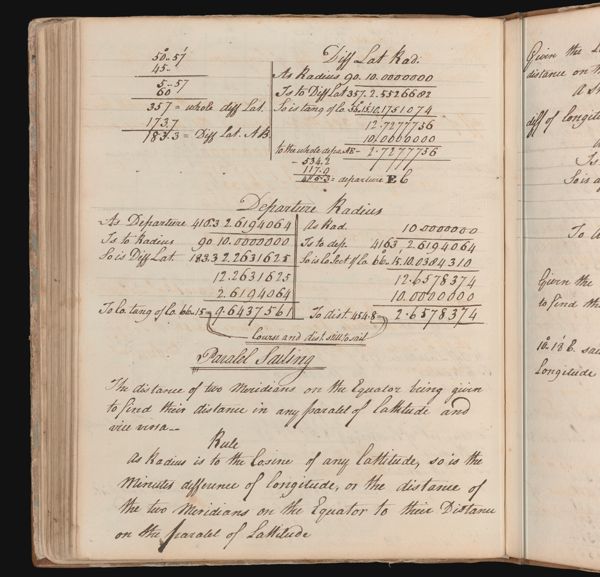 50°-57'
45-
5-57
60
357 = whole diff Lat.
173.7
183.3 = Diff Lat. A B
Diff Lat Rad:
As Radius 90. 10.0000000
Is to Diff Lat 357. 2.5526682
So is tang of Co. 56.15 10.1751074
12.7277756
10.0000000
to the whole depa. AE - 2.7277756
- 534.2
117.9
= departure E 6
Departure Radius
As Departure 416.3 2.6194064
Is to Radius 90 10.0000000
So is Diff Lat 183.3 2.2631625
12.2631625
2.6194064
To Co. tang of Co. 66.15 = 9.6437561
As Rad. 10.0000000
Is to dep. 416.3 2.6194064
So is Co Sect of Co. 66.15. 10.0384310
12.6578374
10.0000000
To dist. 454.8 2.6578374
Course and dist. still to sail
Paralel Sailing
The distance of two Meridians on the Equator being given
to find their distance in any paralel of lattitude and
vice versa -
Rule
As Radius is to the Cosine of any Lattitude, so is the
Minutes difference of longitude, or the distance of
the two Meridians on the Equator to their Distance
on the paralel of Lattitude
Given the
distance on
diff of longit
Is
So is
To
Given the
to find th
10°.18' E. sai
Longitude